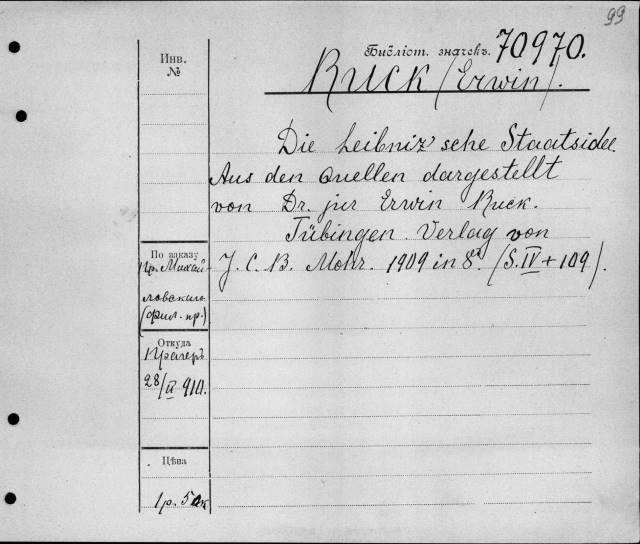 99
Библіот. значекъ. 70970.
Ruck (Erwin).
Инв.
№
Die Leibniz'sche Staatsidee.
Aus den Quellen dargestellt
von Dr. jur Erwin Ruck.
Tübingen. Verlag von
J. C. B. Mohr. 1909 in 8º. (S. IV + 109).
По заказу
Пр. Михай-
ловскаго
(фил. пр.)
Откуда
Прагеръ
28/II 910.
Цѣна
1р. 50к